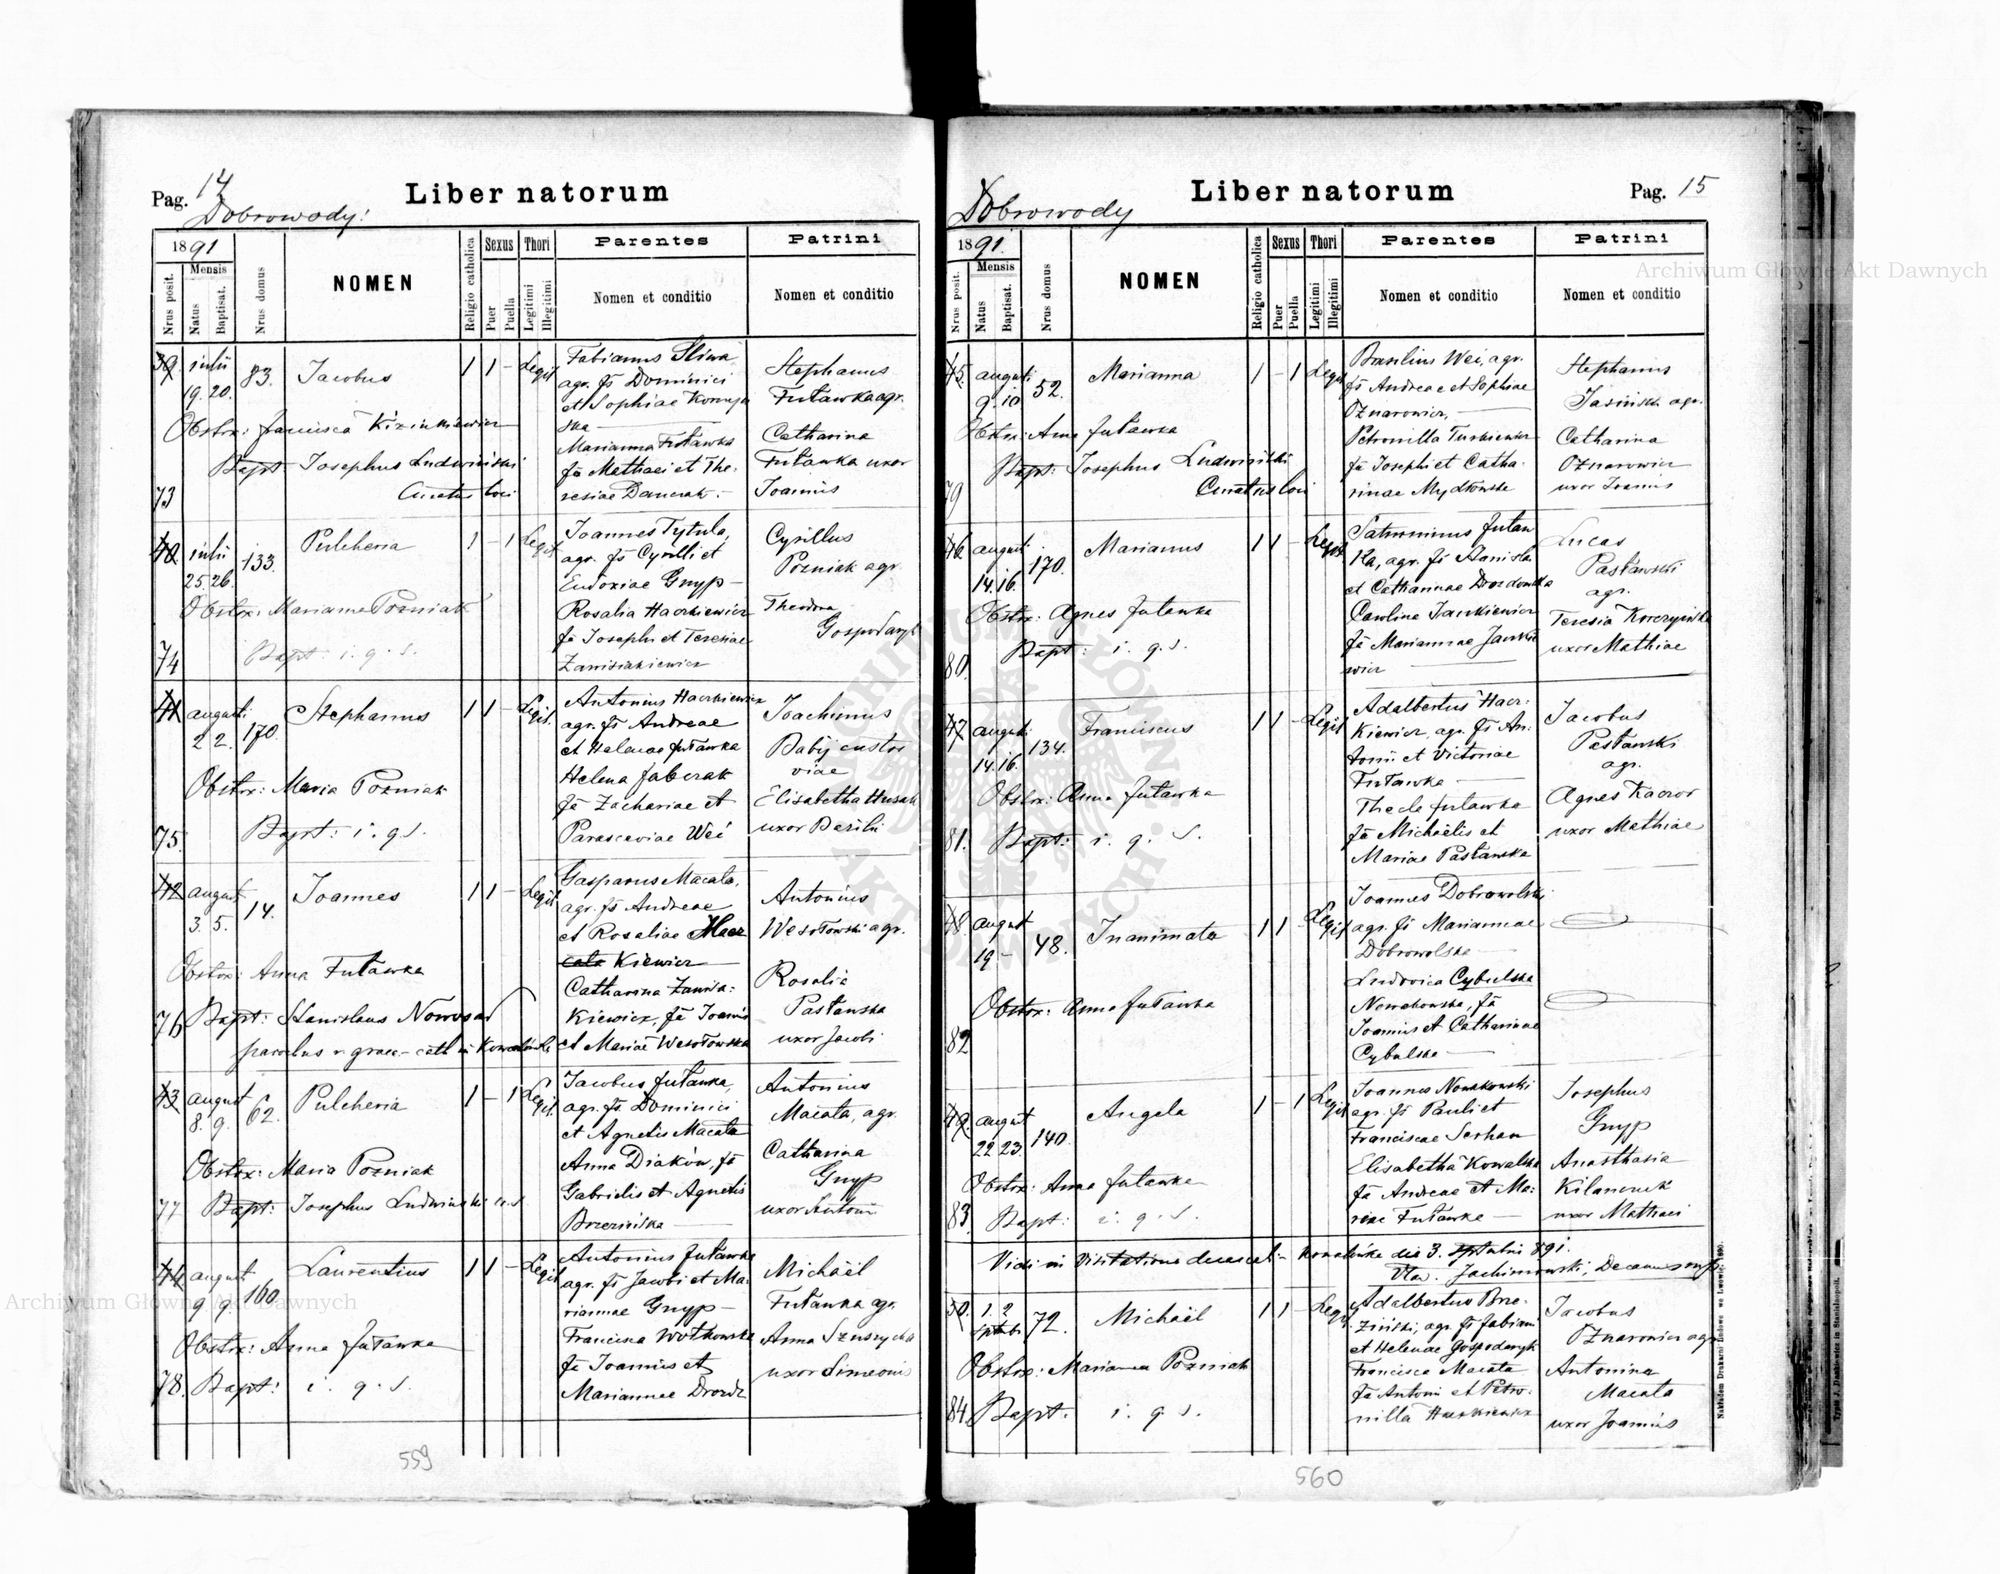 Pag. 14
Liber natorum
Dobrowody:
1891
Mensis
Nrus posit.
Natus
Baptisat.
Nrus domus
NOMEN
Religio catholica
Sexus
Puer
Puella
Thori
Legitimi
Illegitimi
Parentes
Nomen et conditio
Patrini
Nomen et conditio
39 julii
19. 20. 83. Jacobus 1 1 - Legit
Fabianus Sliwa
agr. fs Dominici
et Sophiae
ska
Marianna Futawka
fa Mathaei et The-
resiae
Stephanus
Futawka agr.
Catharina
Futawka uxor
Joannis
Obstx:
Bapt: Josephus Ludwinski
Curatus loci
73
40 julii
25 26. 133. Pulcheria 1 - 1 Legit
Joannes Tytula,
agr. fs Cyrilli et
Eudoxiae Gnyp -
Rosalia Haczkiewicz
fa Josephi et Teresiae
Cyrillus
Pozniak agr.
Theodora
Obstx: Marianna Pozniak
Bapt: i. q. s.
74
41 augusti
2 2. 170. Stephanus 1 1 - Legit.
Antonius Haczkiewicz
agr. fs Andreae
et Helenae Futawka
Helena
fa Zachariae et
Parasceviae Wei
Joachimus
Babij custos
viae
Elisabetha Husak
uxor Basilii
Obstx: Maria Pozniak
Bapt: i. q. s.
75
42 august
3. 5. 14. Joannes 1 1 - Legit
Gasparus Macata,
agr. fs Andreae
et Rosaliae Hacz
kiewicz
Catharina
kiewicz, fa Joannis
et Mariae Wesotowska
Antonius
Wesotowski agr.
Rosalia
Pastawska
uxor Jacobi
Obstx: Anna Futawka
76 Bapt: Stanislaus Nowosad
parochus r. graec-cath in
43 august
8. 9. 62. Pulcheria 1 - 1 Legit.
Jacobus Futawka,
agr. fs Dominici
et Agnetis Macata
Anna Diaków, fa
Gabrielis et Agnetis
Brzezinska
Antonius
Macata, agr.
Catharina
Gnyp
uxor Antoni
Obstx: Maria Pozniak
77 Bapt: Josephus Ludwinski
44 august
9 9. 160. Laurentius 1 1 - Legit
Antonius Futawka
agr. fs Jacobi et Ma-
riannae Gnyp -
Francisca Wotkowska
fa Joannis et
Mariannae Drozdz
Michaël
Futawka agr.
Anna
uxor Simeonis
Obstx: Anna Futawka
78. Bapt: i. q. s.
559
Pag. 15
Liber natorum
Dobrowody
1891.
Mensis
Nrus posit.
Natus
Baptisat.
Nrus domus
NOMEN
Religio catholica
Sexus
Puer
Puella
Thori
Legitimi
Illegitimi
Parentes
Nomen et conditio
Patrini
Nomen et conditio
45. augusti
9. 10 52. Marianna 1 - 1 Legit
Basilius Wei, agr.
fs Andreae et Sophiae
Oznarowicz,
Petronilla Turkiewicz
fa Josephi et Catha-
rinae Mydtowska
Stephanus
Jasinski agr.
Catharina
Oznarowicz
uxor Joannis
Obstx: Anna Futawka
Bapt: Josephus Ludwinski
Curatus loci
79
46 august
14. 16. 170. Marianus 1 1 - Legit
Saturninus Futaw
ka, agr. fs Stanislai
et Catharinae
Carolina Jankiewicz
fa Mariannae Jankie
wicz
Lucas
Pastawski
agr.
Teresia
uxor Mathiae
Obstx: Agnes Futawka
Bapt: i. q. s.
80
47 august
14. 16. 134. Franciscus 1 1 - Legit
Adalbertus Hacz-
kiewicz, agr. fs An-
tonii et Victoriae
Futawka
Thecla Futawka
fa Michaëlis et
Mariae Pastawska
Jacobus
Pastawski
agr.
Agnes Kaczor
uxor Mathiae
Obstx: Anna Futawka
81. Bapt: i. q. s.
48 august
19 - 48. Inanimata 1 1 - Legit
Joannes Dobrowolski
agr. fs Mariannae
Dobrowolska
Ludovica Cybulska
Nowakowska, fa
Joannis et Catharinae
Cybulska
Obstx: Anna Futawka
82
49. august
22 23. 140. Angela 1 - 1 Legit
Joannes Nowakowski
agr. fs Pauli et
Franciscae Serhan
Elisabetha Kowalska
fa Andreae et Ma-
riae Futawka
Josephus
Gnyp
Anasthasia
uxor Mathaei
Obstx: Anna Futawka
83 Bapt: i. q. s.
Vidi in Visitatione decanali die 3. septembri 891.
Decanus
50. 1. 2
septemb. 72. Michaël 1 1 - Legit
Adalbertus Brze-
zinski, agr. fs Fabiani
et Helenae Gospodaryk
Francisca Macata
fa Antoni et Petro-
nilla Haczkiewicz
Jacobus
Oznarowicz agr.
Antonina
Macata
uxor Joannis
Obstx: Marianna Pozniak
84. Bapt. i. q. s.
560
Nakładem Drukarni Ludowej we Lwowie 1890.
Archiwum Główne Akt Dawnych
Archiwum Główne Akt Dawnych